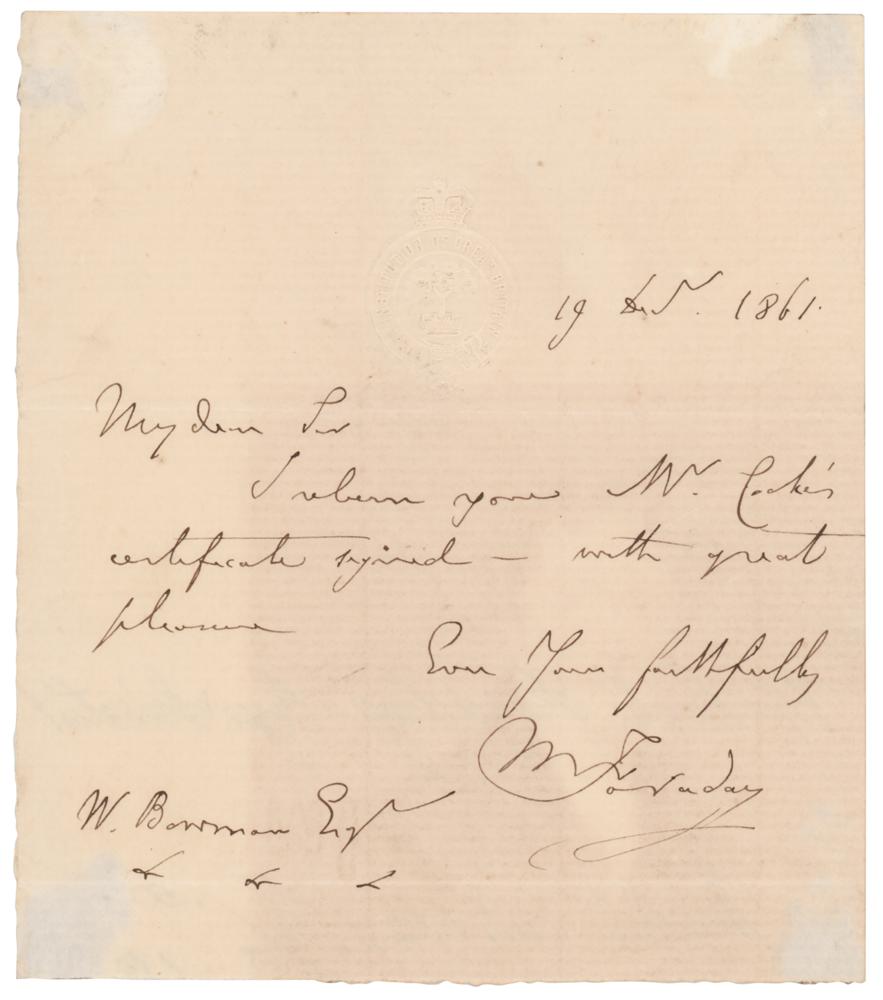 19 Decr. 1861.
My dear Sir
I return you Mr. Cooke's
certificate signed - with great
pleasure
Ever Yours faithfully
M Faraday
W. Bowman Esqr
&c &c &c